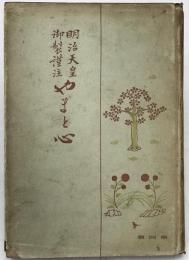 明治天皇
御製謹注
やまと心